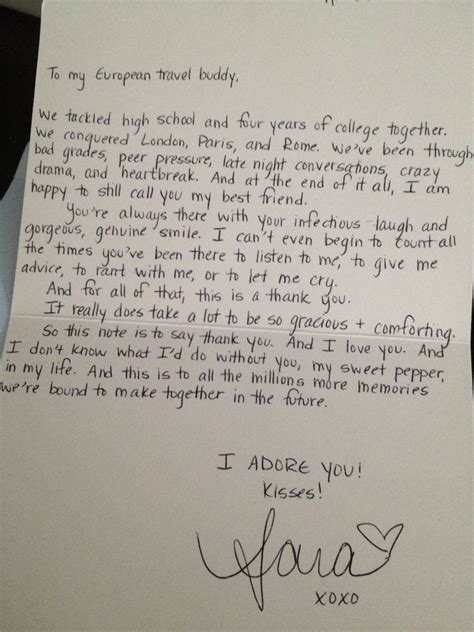 To my European travel buddy,
We tackled high school and four years of college together.
We conquered London, Paris, and Rome. We've been through
bad grades, peer pressure, late night conversations, crazy
drama, and heartbreak. And at the end of it all, I am
happy to still call you my best friend.
You're always there with your infectious laugh and
gorgeous, genuine smile. I can't even begin to count all
the times you've been there to listen to me, to give me
advice, to rant with me, or to let me cry.
And for all of that, this is a thank you.
It really does take a lot to be so gracious + comforting.
So this note is to say thank you. And I love you. And
I don't know what I'd do without you, my sweet pepper,
in my life. And this is to all the millions more memories
we're bound to make together in the future.
I ADORE YOU!
Kisses!
Sara
XOXO